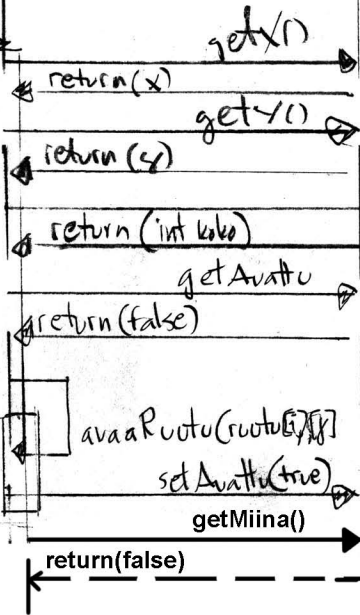 getX()
return(x)
getY()
return(y)
return(int koko)
getAvattu
return(false)
avaaRuutu(ruutu[i][j]
setAvattu(true)
getMiina()
return(false)